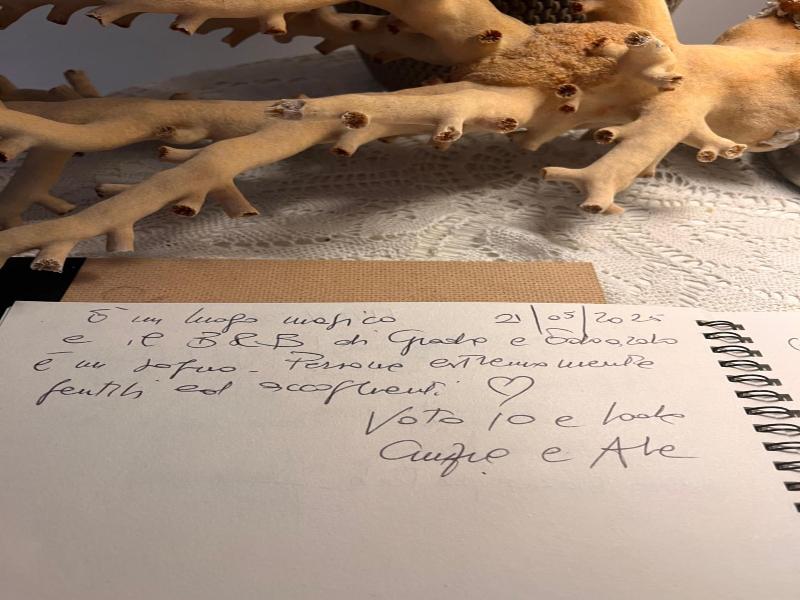 È un luogo magico 21/05/2025
e il B&B di Giada e Edoardo
è un sogno. Persone estremamente
gentili ed accoglienti ♡
Voto 10 e lode
e Ale